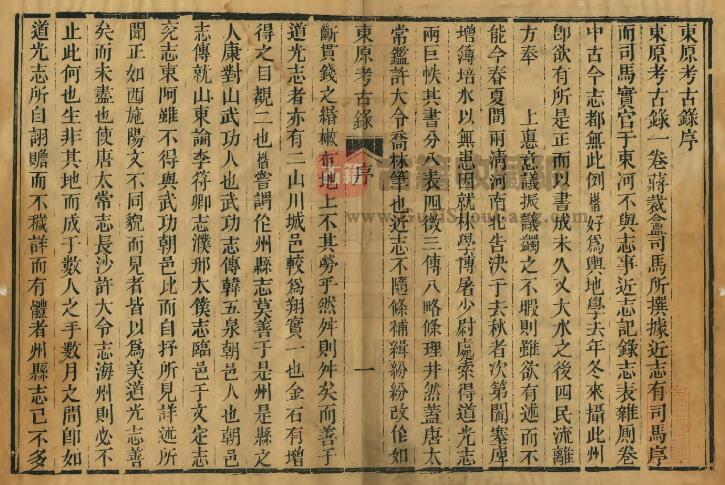 東原考古錄序
東原考古錄一卷蔣菣盦司馬所撰據近志有司馬序
而司馬實官于東河不與志事近志記錄志表雜廁卷
中古今志都無此例楷好為輿地學去年冬來攝此州
卽欲有所是正而以書成未久又大水之後四民流離
方奉 上恩忘議振議蠲之不暇則雖欲有述而不
能今春夏間兩淸河南北告決于去秋者次第闔塞庳
增薄培水以無患因就林學博屠少尉處索得道光志
兩巨帙其書分八表四徵三傳八略條理井然蓋唐太
常鑑許大令喬林筆也近志不隨條補緝紛紛改作如
東原考古錄 序 一
斷貫錢之緡櫢布地上不其勞乎然舛則舛矣而善于
道光志者亦有二山川城邑較為翔實一也金石有增
得之目覩二也楷嘗謂作州縣志莫善于是州是縣之
人康對山武功人也武功志傳韓五泉朝邑人也朝邑
志傳就山東諭李符卿志濮邢太僕志臨邑于文定志
兗志東阿雖不得與武功朝邑比而自抒所見詳述所
聞正如西施陽文不同貌而見者皆以為美道光志善
矣而未盡也使唐太常志長沙許大令志海州則必不
止此何也生非其地而成于數人之手數月之間卽如
道光志所自詡贍而不穢詳而有體者州縣志已不多